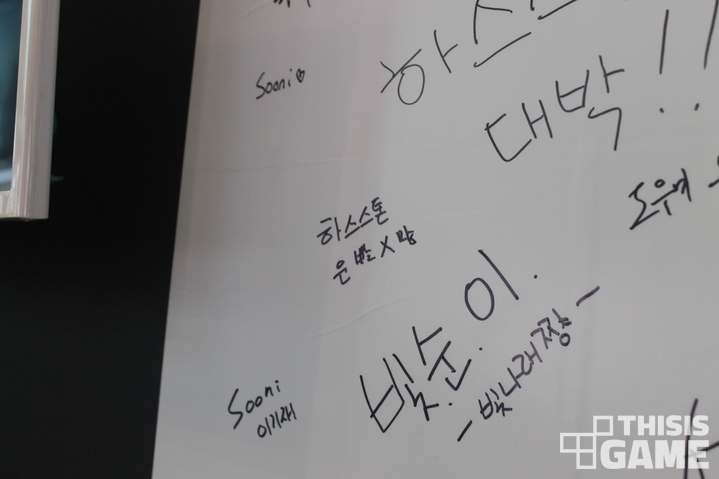 Sooni♥
하스
대박!!
하스스톤
운빨X망
빛.순.이.
-빛나래짱-
Sooni
이기재
THISIS
GAME